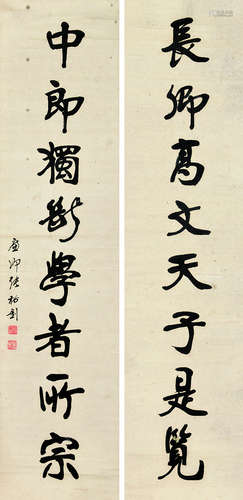 長卿高文天子是覽
中郎獨斷學者所宗
張裕釗